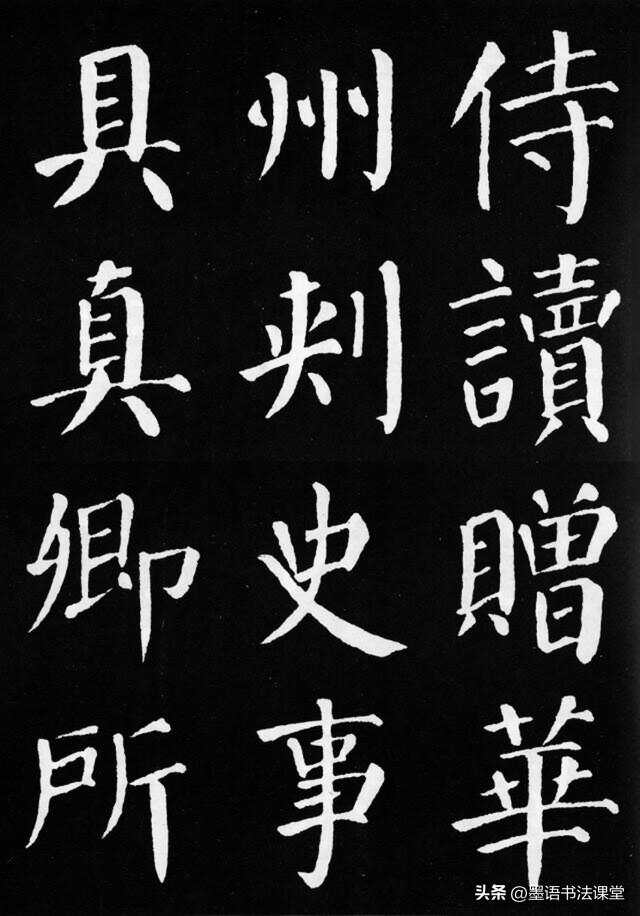 侍讀贈華
州刺史事
具真卿所
头条 @墨语书法课堂